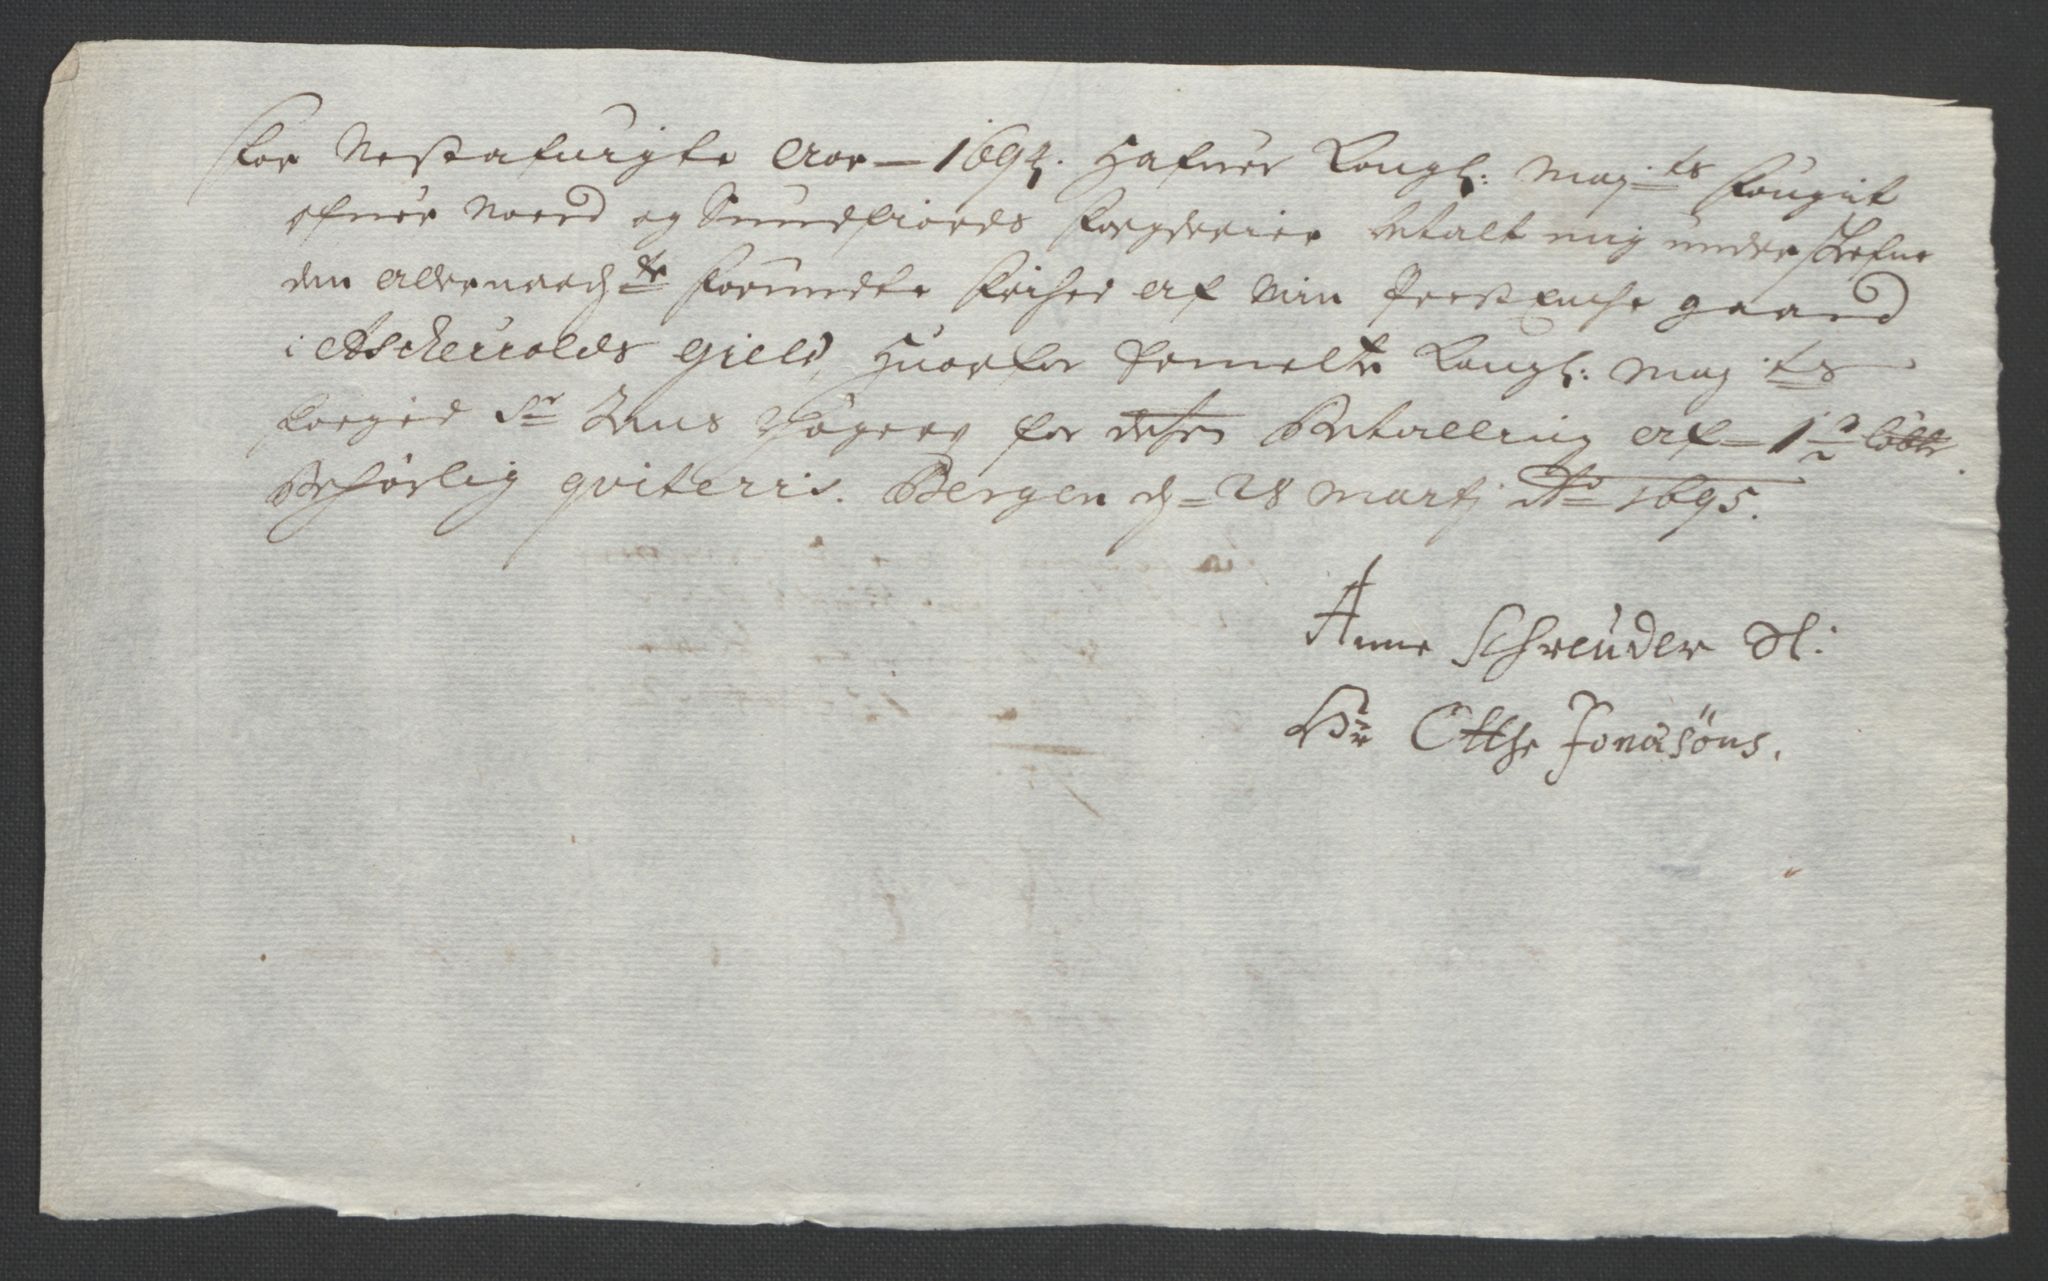 For Nestafuigte Aar – 1694. Hafuer Kongl: May:ts Fougit
ofuer Noerd og Sundfiords Fogderier betalt mig underskrefne
den allernaadigste forundte frihed af min Prest Encke gaard
i Aschevolds gield, Huorfor bemelte Kongl: May:ts
Foegid Sr Jens for dessen Betalling af – 1
Behørlig qviteris. Bergen d= 28 Martj Ao 1695.
Anne Schreuder Sl:
Hr Otthe Jonasøns.